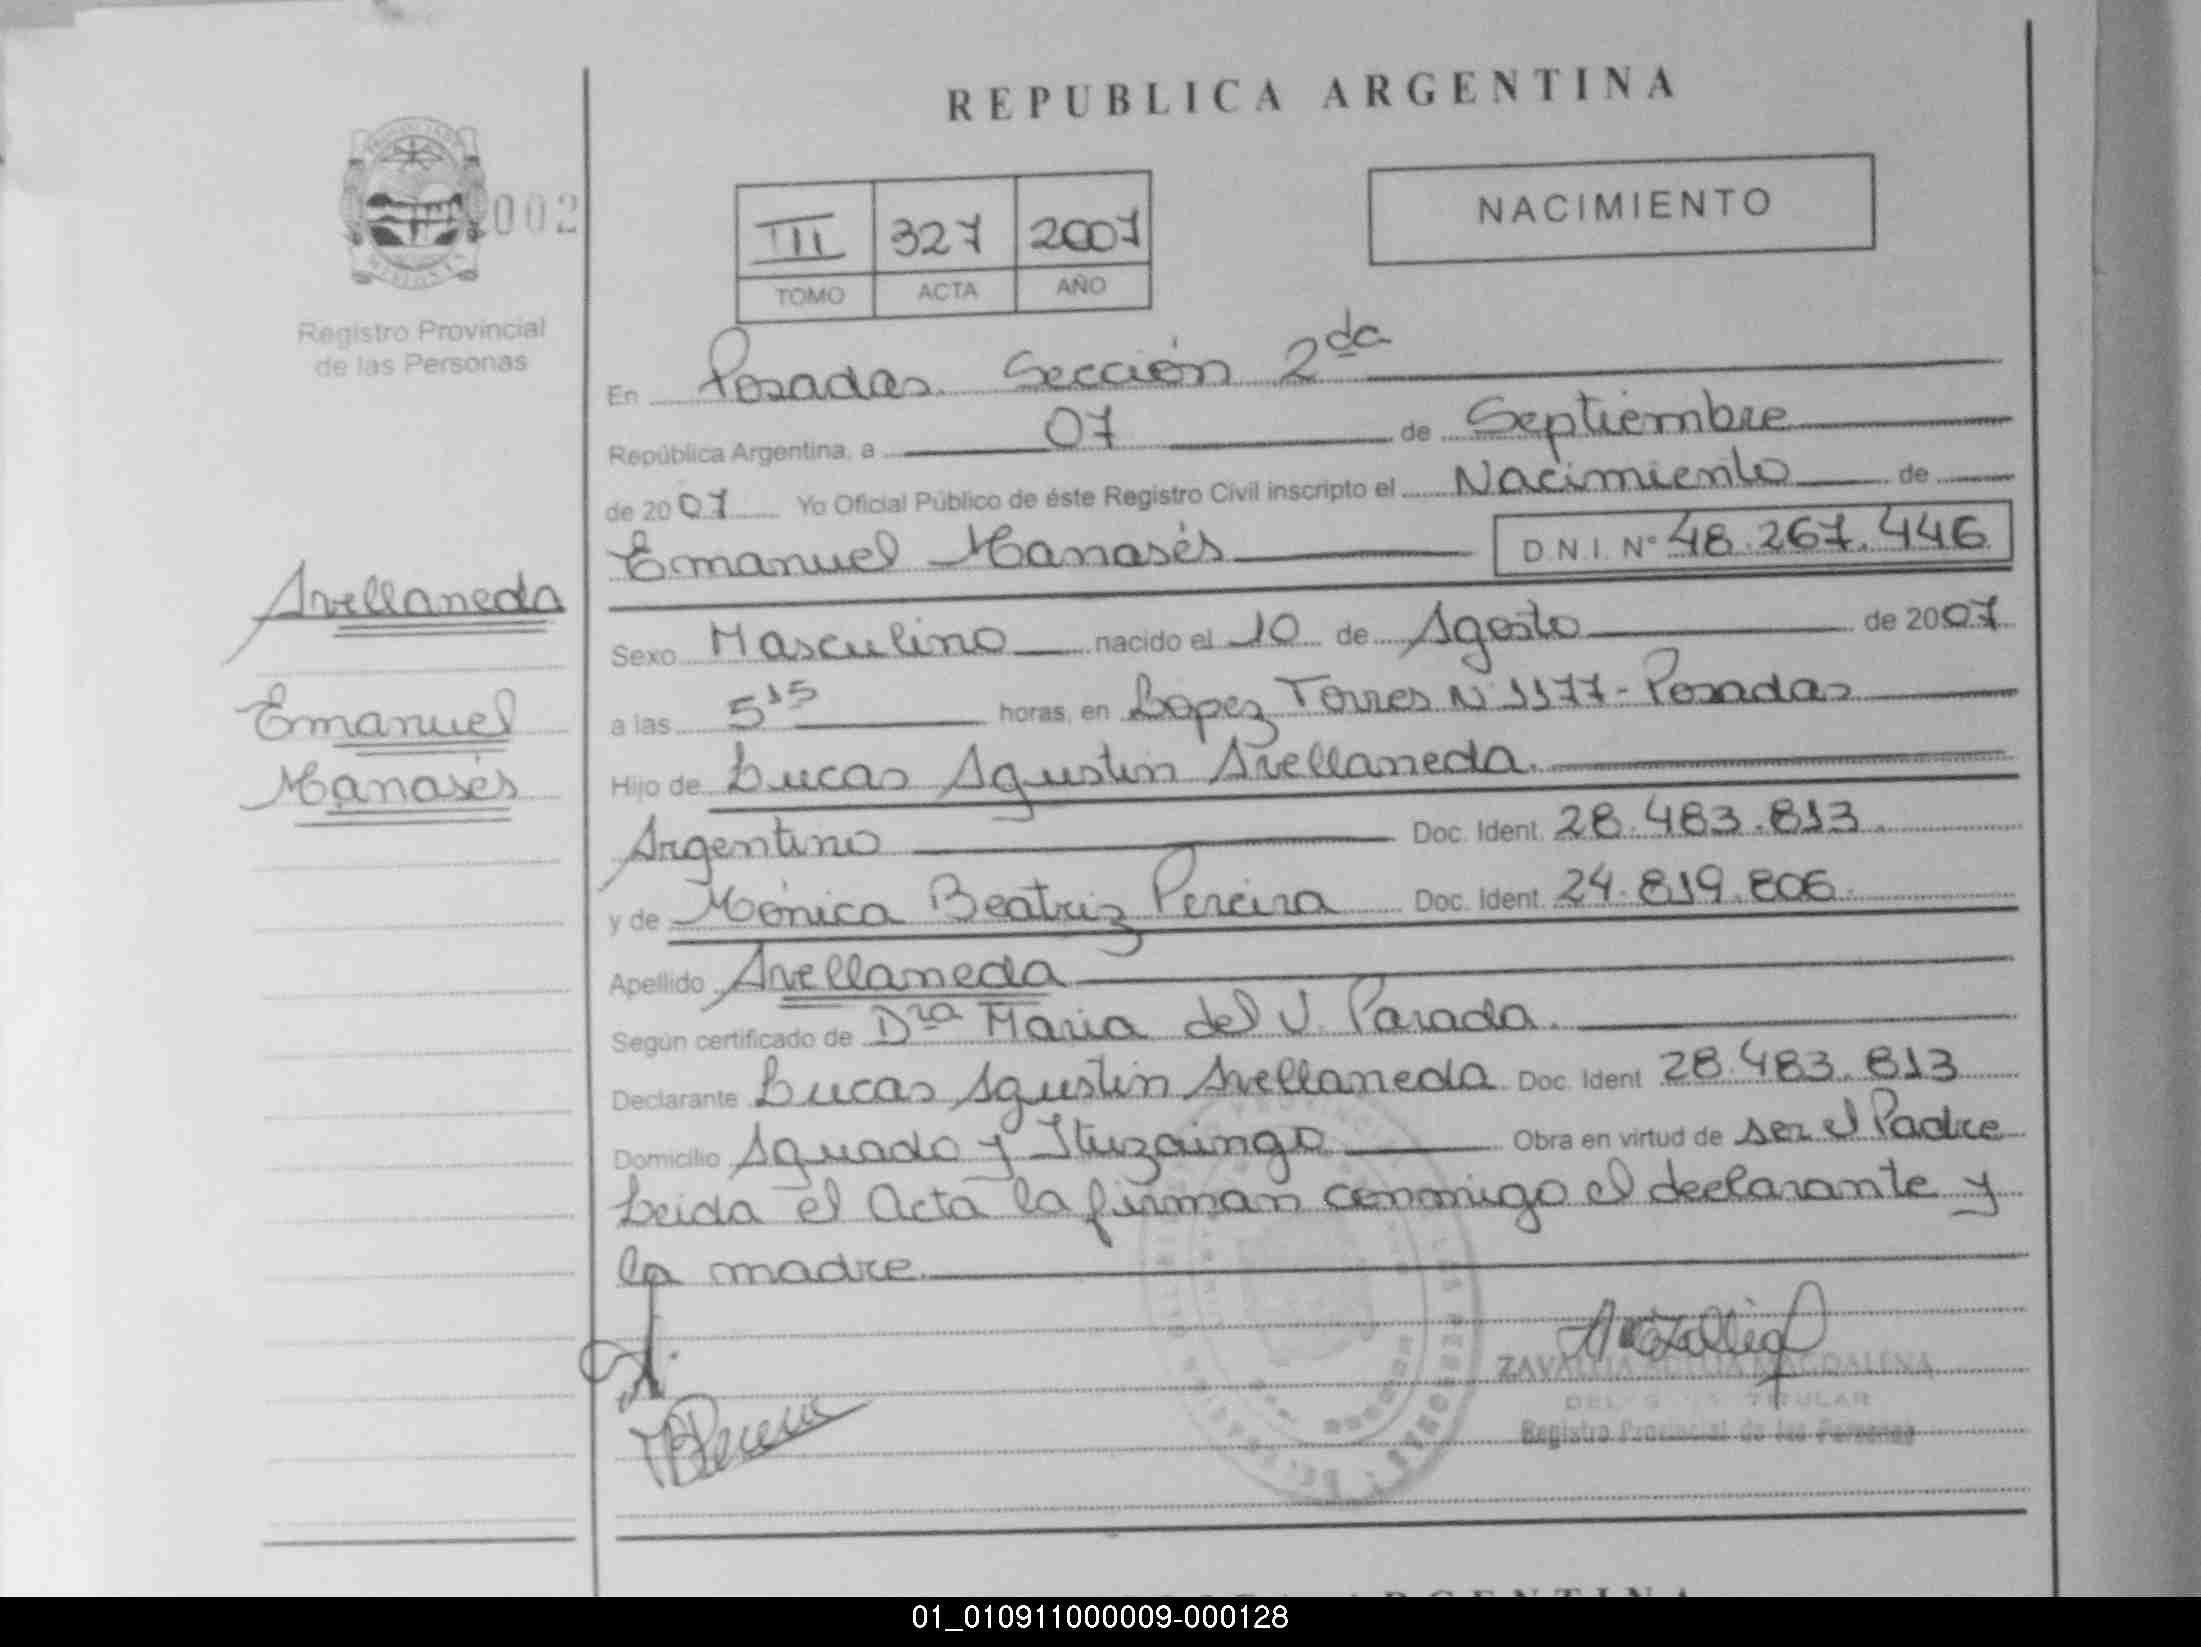 REPUBLICA ARGENTINA
002
NACIMIENTO
III 327 2007
TOMO ACTA AÑO
Registro Provincial
de las Personas
En Posadas Sección 2da
República Argentina, a 07 de Septiembre
de 2007 Yo Oficial Público de éste Registro Civil inscripto el Nacimiento de
Emanuel Manasés D N.I. Nº 48.267.446
Avellaneda
Emanuel
Manasés
Sexo Masculino nacido el 10 de Agosto de 2007
a las 5 15 horas, en Lopez Torres N 1177 - Posadas
Hijo de Lucas Agustin Avellaneda.
Argentino Doc. Ident. 28.483.813.
y de Mónica Beatriz Pereira Doc. Ident. 24.819.806.
Apellido Avellaneda
Según certificado de Dra Maria del V. Parada.
Declarante Lucas Agustin Avellaneda Doc. Ident 28.483.813
Domicilio Aguado y Ituzaingo Obra en virtud de ser el Padre
Leida el Acta la firman conmigo el declarante y
la madre.
MAGDALENA
TITULAR
Registro Provincial de las Personas
01_010911000009-000128